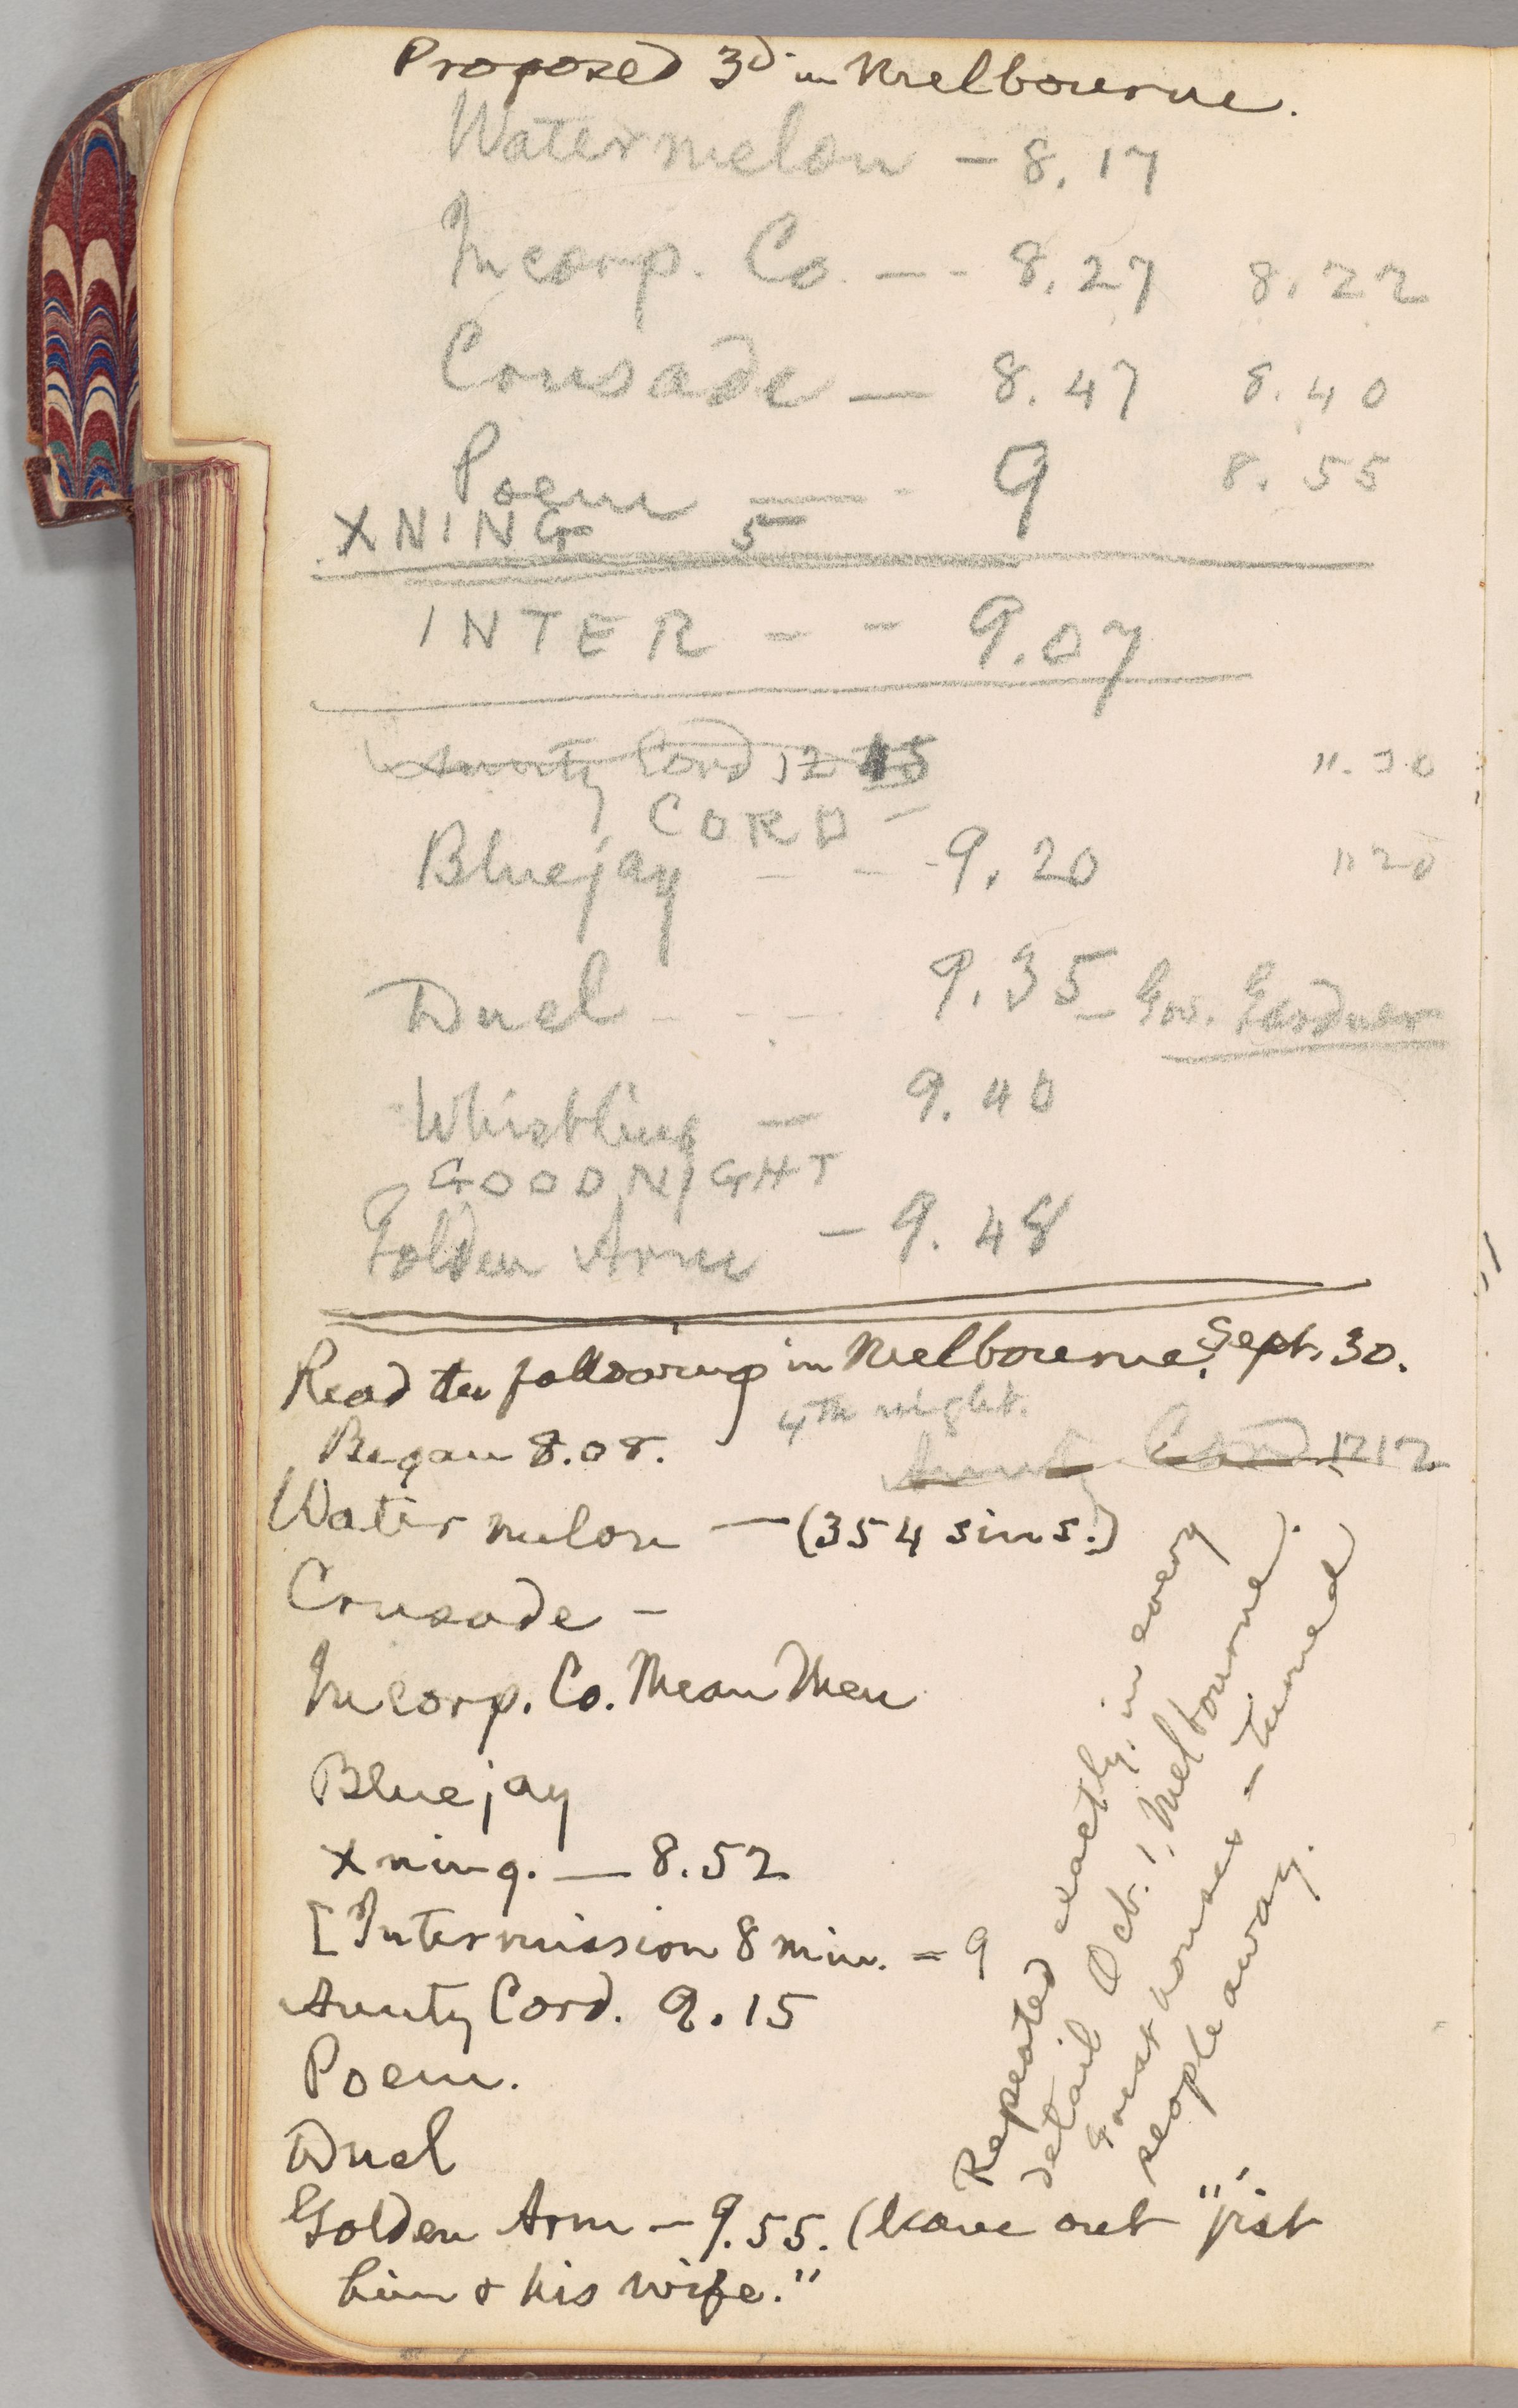 Proposed 3d in Melbourne.
Watermelon — 8.17
Incorp. Co. — - 8.27 8.22
Crusade — 8.47 8.40
Poem — - 9 8.55
XNING 5
INTER - - 9.07
Aunty Cord 12 15 ".30
CORD -
Bluejay - - - 9.20 "20
Duel - - - 9.35 - Gov. Gardner
Whistling — 9.40
GOOD NIGHT
Golden Arm - 9.48
Read the following in Melbourne, Sept. 30.
4th night.
Began 8.08.
Aunty Cord 1212
Water melon — (354 sins.)
Crusade -
Incorp. Co. Mean Men
Bluejay
Xning. — 8.52
[Intermission 8 min. = 9
Aunty Cord. 9.15
Poem.
Duel
Golden Arm - 9.55. (leave out "jist
him & his wife."
Repeated exactly, in every
detail Oct. 1, Melbourne.
Great houses - turned
people away.